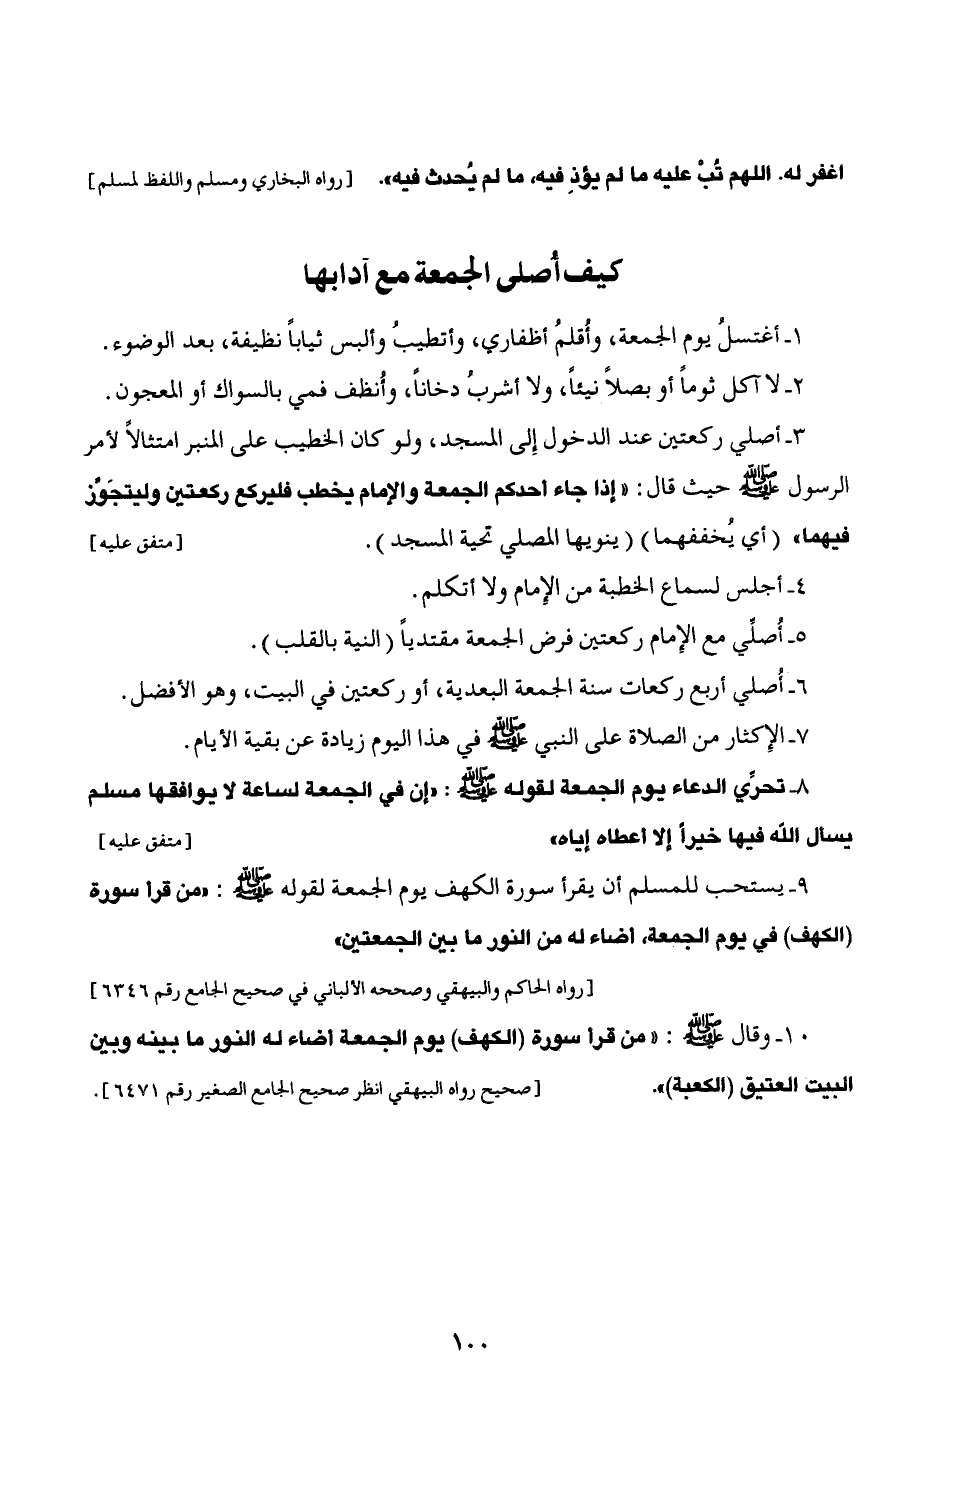 اغفر له. اللهم تُبْ عليه ما لم يؤذِ فيه، ما لم يُحدث فيه». [رواه البخاري ومسلم واللفظ لمسلم]
كيف أُصلي الجمعة مع آدابها
١ـ أغتسلُ يوم الجمعة، وأُقلمُ أظفاري، وأتطيبُ وألبس ثياباً نظيفة، بعد الوضوء.
٢ـ لا آكل ثوماً أو بصلاً نيئاً، ولا أشربُ دخاناً، وأُنظف فمي بالسواك أو المعجون.
٣ـ أصلي ركعتين عند الدخول إلى المسجد، ولو كان الخطيب على المنبر امتثالاً لأمر
الرسول ﷺ حيث قال: «إذا جاء أحدكم الجمعة والإمام يخطب فليركع ركعتين وليتجَوَّز
فيهما» (أي يُخففهما) (ينويها المصلي تحية المسجد). [متفق عليه]
٤ـ أجلس لسماع الخطبة من الإمام ولا أتكلم.
٥ـ أُصلِّي مع الإمام ركعتين فرض الجمعة مقتدياً (النية بالقلب).
٦ـ أُصلي أربع ركعات سنة الجمعة البعدية، أو ركعتين في البيت، وهو الأفضل.
٧ـ الإكثار من الصلاة على النبي ﷺ في هذا اليوم زيادة عن بقية الأيام.
٨ـ تحرِّي الدعاء يوم الجمعة لقوله ﷺ : «إن في الجمعة لساعة لا يوافقها مسلم
يسأل الله فيها خيراً إلا أعطاه إياه» [متفق عليه]
٩ـ يستحب للمسلم أن يقرأ سورة الكهف يوم الجمعة لقوله ﷺ : «من قرأ سورة
(الكهف) في يوم الجمعة، أضاء له من النور ما بين الجمعتين»
[رواه الحاكم والبيهقي وصححه الألباني في صحيح الجامع رقم ٦٣٤٦]
١٠ـ وقال ﷺ : «من قرأ سورة (الكهف) يوم الجمعة أضاء له النور ما بينه وبين
البيت العتيق (الكعبة)». [صحيح رواه البيهقي انظر صحيح الجامع الصغير رقم ٦٤٧١].
١٠٠